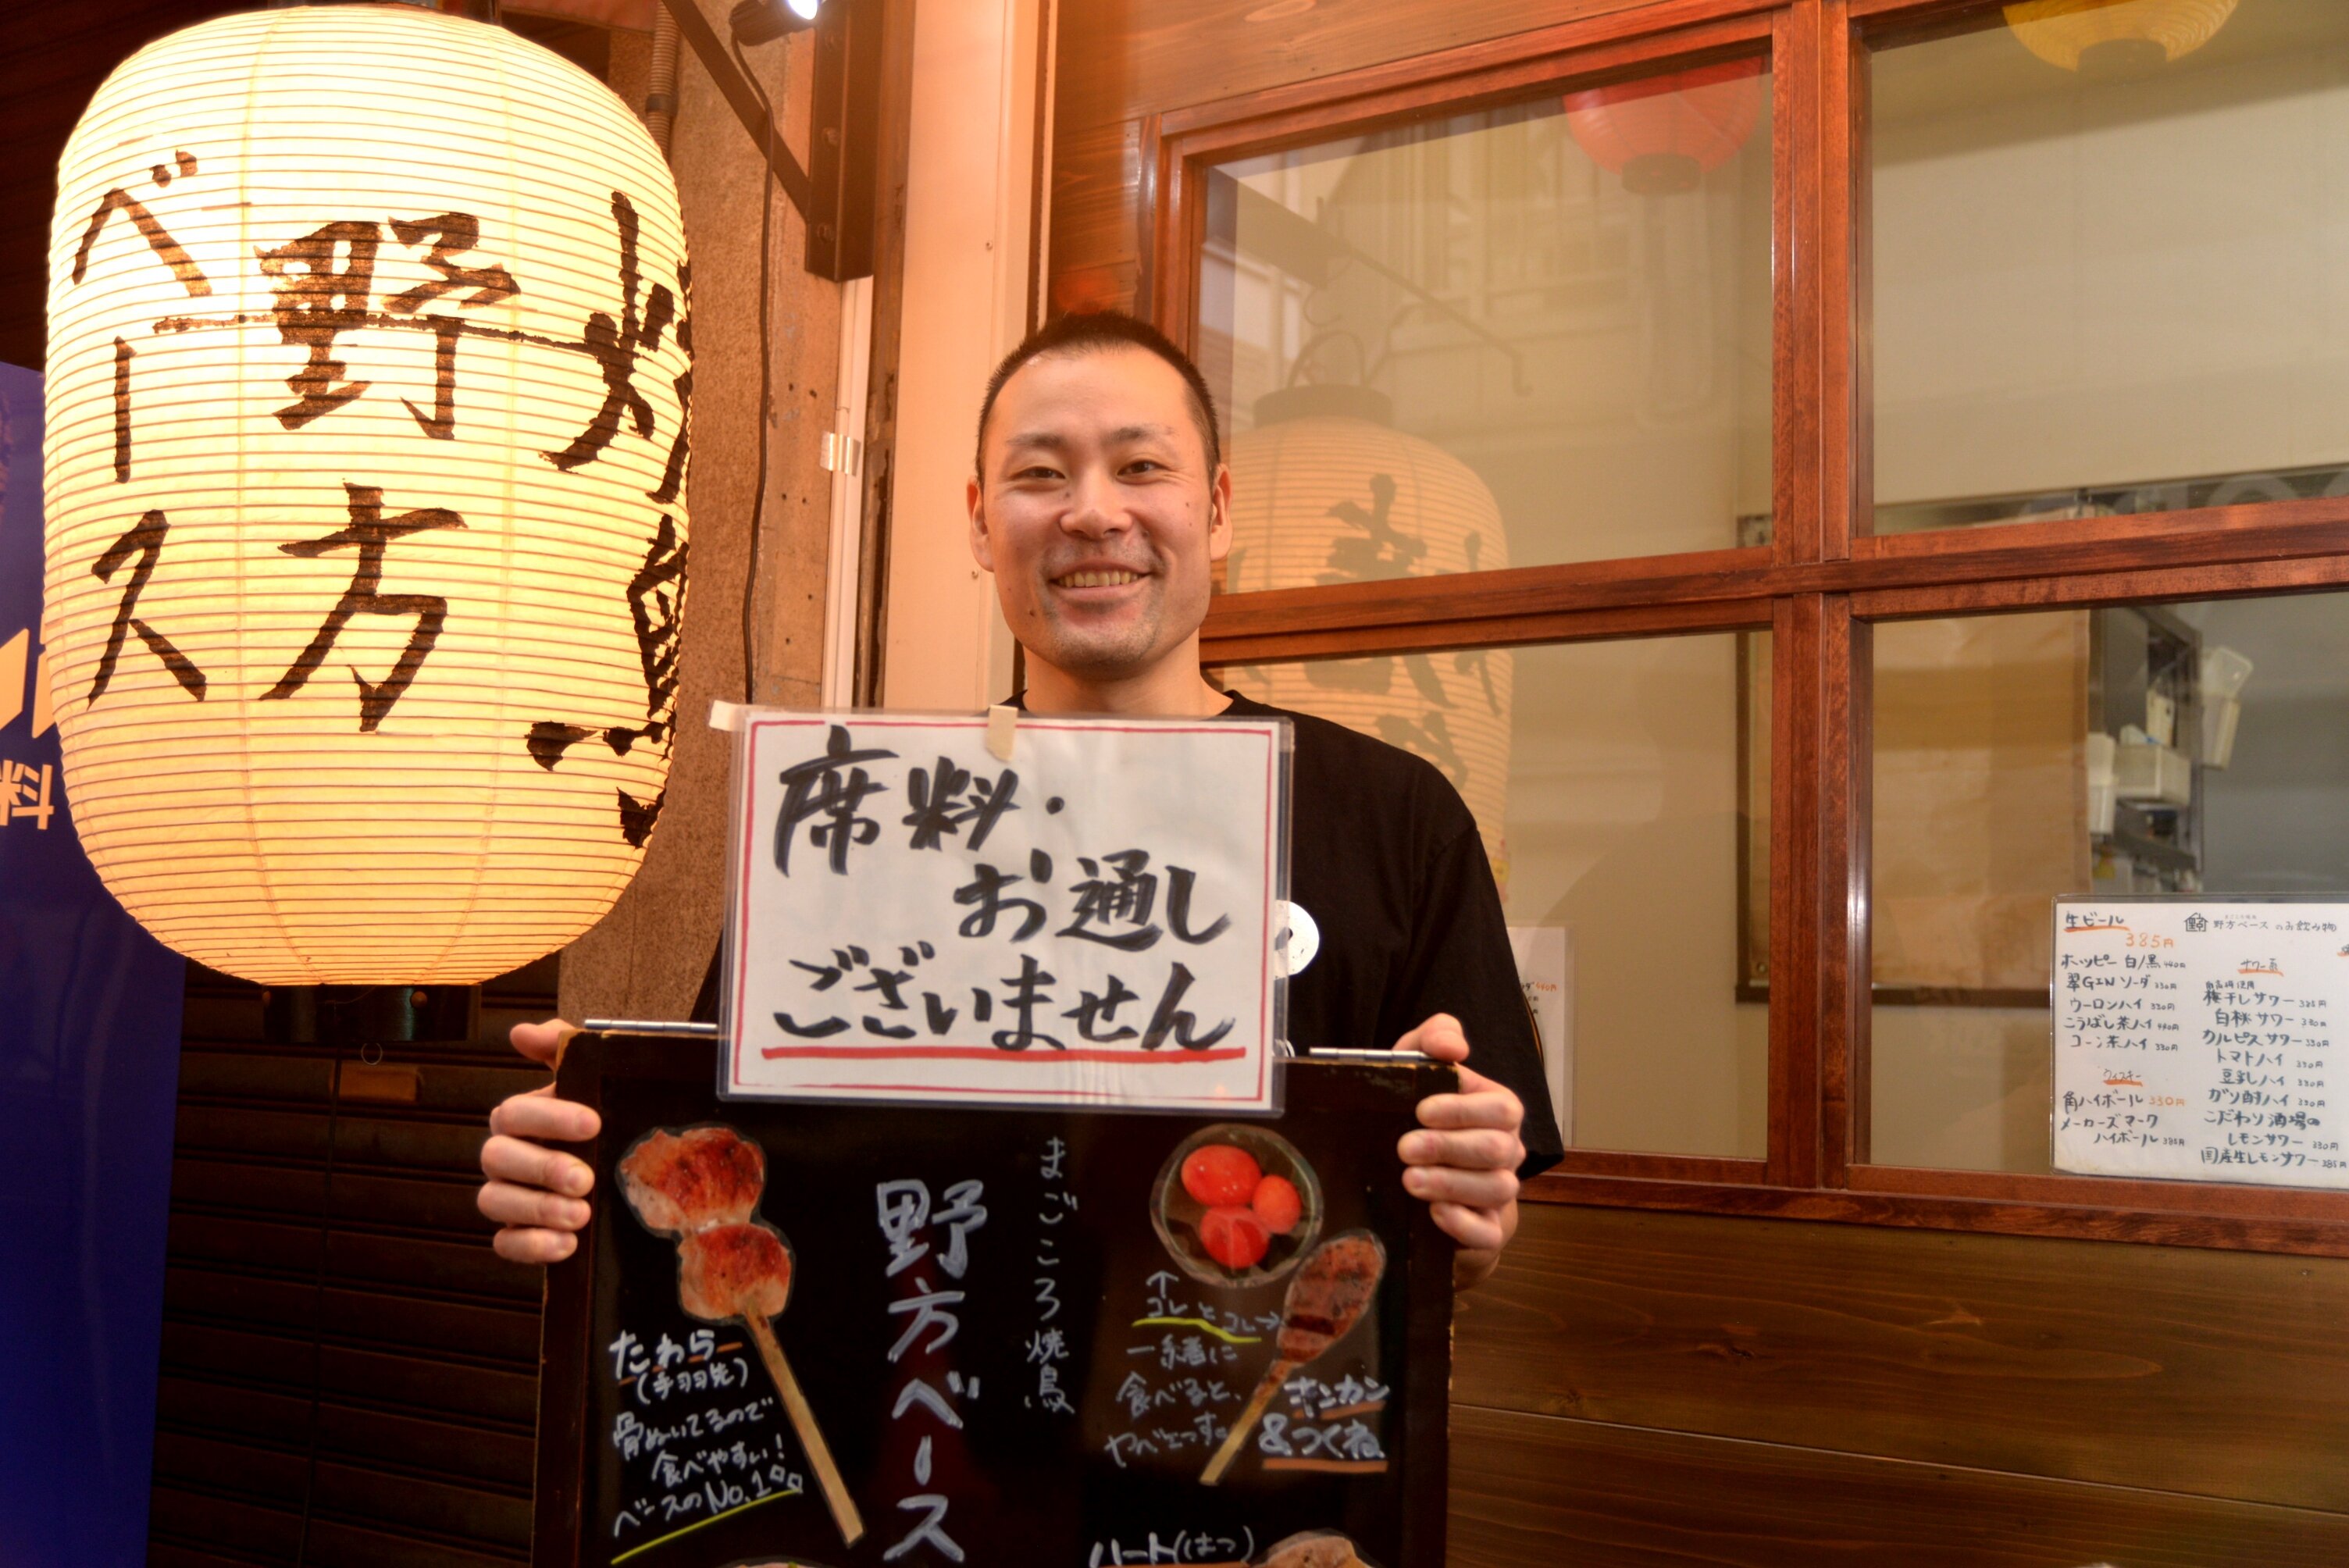 焼鳥
野方
ベース
席料・
お通し
ございません
まごころ焼鳥
野方ベース
たわら
(手羽先)
骨ぬいてるので
食べやすい!
ベースのNo.1
↑
コレとコレ→
一緒に
食べると、
ヤベェっす。
キンカン
&つくね
ハート(はつ)
料
野方ベースのお飲み物
生ビール
385円
ホッピー 白/黒 440円
翠GINソーダ 330円
ウーロンハイ 330円
こうばし茶ハイ 440円
コーン茶ハイ 330円
ウィスキー
角ハイボール 330円
メーカーズマーク
ハイボール 385円
サワー系
梅干しサワー
白桃サワー
カルピスサワー 330円
トマトハイ 330円
豆乳ハイ 330円
ガリ酎ハイ 330円
こだわり酒場の
レモンサワー 330円
国産生レモンサワー 385円